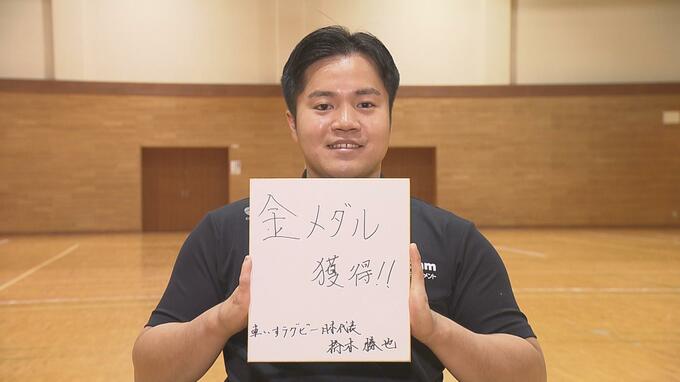 金メダル
獲得!!
車いすラグビー日本代表
橋本勝也